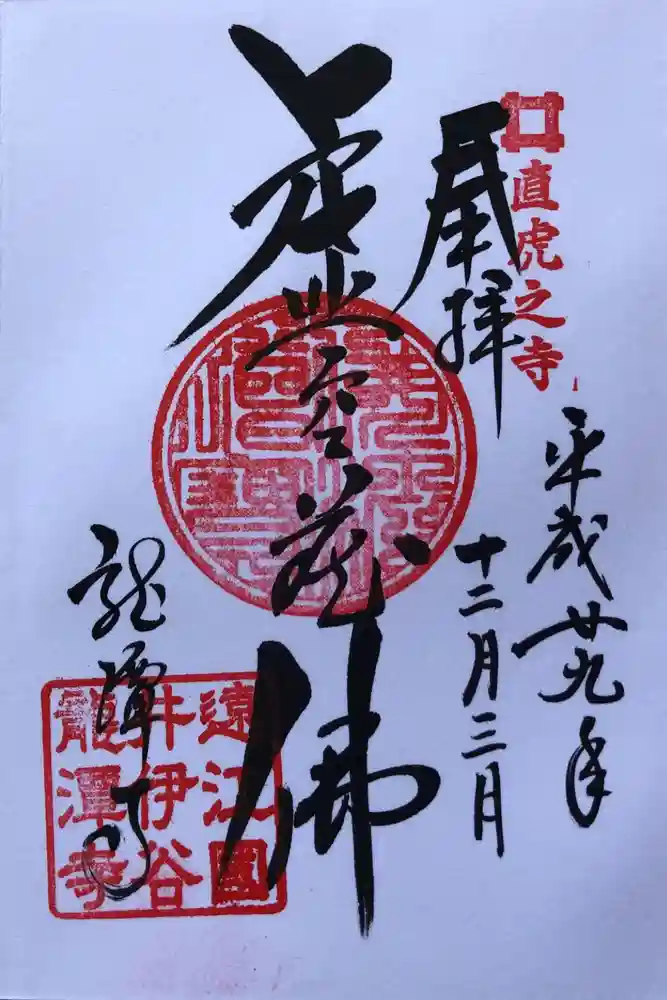 直虎之寺
平成廿九年
十二月三日
奉拝
虚空蔵佛
龍潭寺
遠江國
井伊谷
龍潭寺